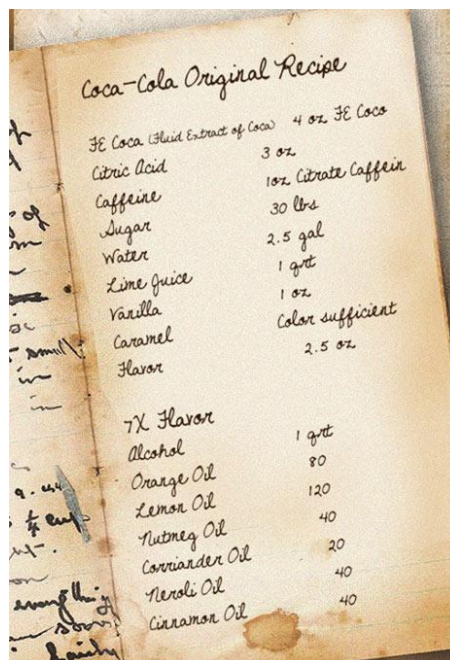 of
in
in
¼ cup
everything
Coca-Cola Original Recipe
FE Coca (Fluid Extract of Coca) 4 oz FE Coco
Citric Acid 3 oz
Caffeine 1oz Citrate Caffein
Sugar 30 lbs
Water 2.5 gal
Lime Juice 1 qrt
Vanilla 1 oz
Caramel Color sufficient
Flavor 2.5 oz
7X Flavor
Alcohol 1 qrt
Orange Oil 80
Lemon Oil 120
Nutmeg Oil 40
Corriander Oil 20
Neroli Oil 40
Cinnamon Oil 40